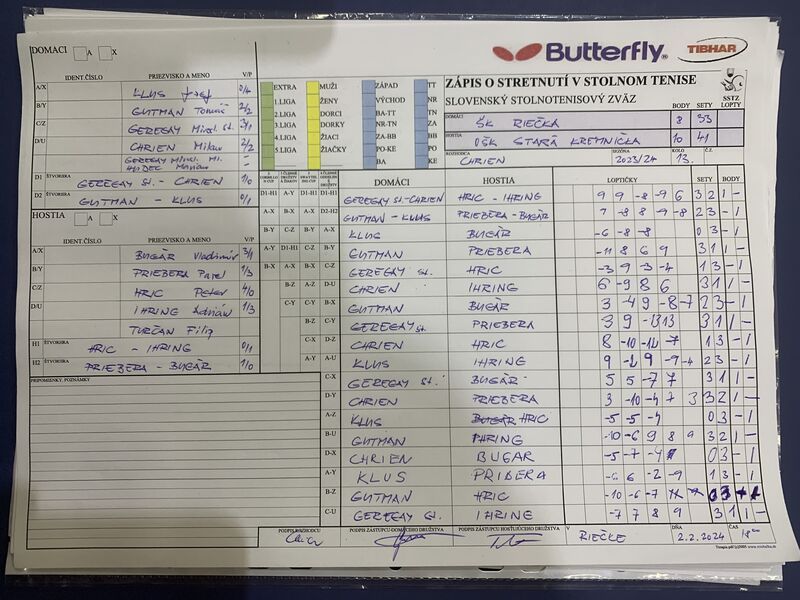 DOMACI A X
Butterfly
TIBHAR
ZÁPIS O STRETNUTÍ V STOLNOM TENISE
SLOVENSKÝ STOLNOTENISOVÝ ZVÄZ
SSTZ
LOPTY
IDENT.ČÍSLO PRIEZVISKO A MENO V/P
A/X KLUS Jozef 0/4
B/Y GUTMAN Tomáš 2/2
C/Z GEREGAY Mirosl. st. 3/1
D/U CHRIEN Milan 2/2
D1 ŠTVORHRA GEREGAY st. - CHRIEN 1/0
D2 ŠTVORHRA GUTMAN - KLUS 0/1
EXTRA MUŽI ZÁPAD TT
1.LIGA ŽENY VÝCHOD NR
2.LIGA DORCI BA-TT TN
3.LIGA DORKY NR-TN ZA
4.LIGA ŽIACI ZA-BB BB
5.LIGA ŽIAČKY PO-KE PO
BA KE
BODY SETY
DOMÁCI ŠK RIEČKA 8 33
HOSTIA OŠK STARÁ KREMNIČKA 10 41
ROZHODCA CHRIEN SEZÓNA 2023/24 KOLO 13. Č.Z.
HOSTIA A X
IDENT.ČÍSLO PRIEZVISKO A MENO V/P
A/X BUGÁR Vladimír 3/1
B/Y PRIEBERA Pavel 1/3
C/Z HRIC Peter 4/0
D/U IHRING Adrián 1/3
TURČAN Filip
H1 ŠTVORHRA HRIC - IHRING 0/1
H2 ŠTVORHRA PRIEBERA - BUGÁR 1/0
PRIPOMIENKY, POZNÁMKY
DOMÁCI HOSTIA LOPTIČKY SETY BODY
D1-H1 GEREGAY ST.-CHRIEN HRIC - IHRING 9 9 -8 -9 6 3 2 1 -
D2-H2 GUTMAN - KLUS PRIEBERA - BUGÁR 7 -8 8 -9 -8 2 3 - 1
KLUS BUGÁR -6 -8 -8 0 3 - 1
GUTMAN PRIEBERA -11 8 6 9 3 1 1 -
GEREGAY st. HRIC -3 9 -3 -4 1 3 - 1
CHRIEN IHRING 6 -9 8 6 3 1 1 -
GUTMAN BUGÁR 3 -4 9 -8 -7 2 3 - 1
GEREGAY st. PRIEBERA 3 9 -13 13 3 1 1 -
CHRIEN HRIC 8 -10 -12 -7 1 3 - 1
A-U KLUS IHRING 9 -2 9 -9 -4 2 3 - 1
C-X GEREGAY st. BUGÁR 5 5 -7 7 3 1 1 -
D-Y CHRIEN PRIEBERA 3 -10 -4 7 3 3 2 1 -
A-Z KLUS HRIC -5 -5 -4 0 3 - 1
B-U GUTMAN IHRING -10 -6 9 8 9 3 2 1 -
D-X CHRIEN BUGAR -5 -7 -4 0 3 - 1
A-Y KLUS PRIBERA -6 6 -2 -9 1 3 - 1
B-Z GUTMAN HRIC -10 -6 -7 0 3 - 1
C-U GEREGAY st. IHRING -7 7 8 9 3 1 1 -
PODPIS ROZHODCU PODPIS ZÁSTUPCU DOMÁCEHO DRUŽSTVA PODPIS ZÁSTUPCU HOSŤUJÚCEHO DRUŽSTVA V RIEČKE DŇA 2.2.2024 ČAS